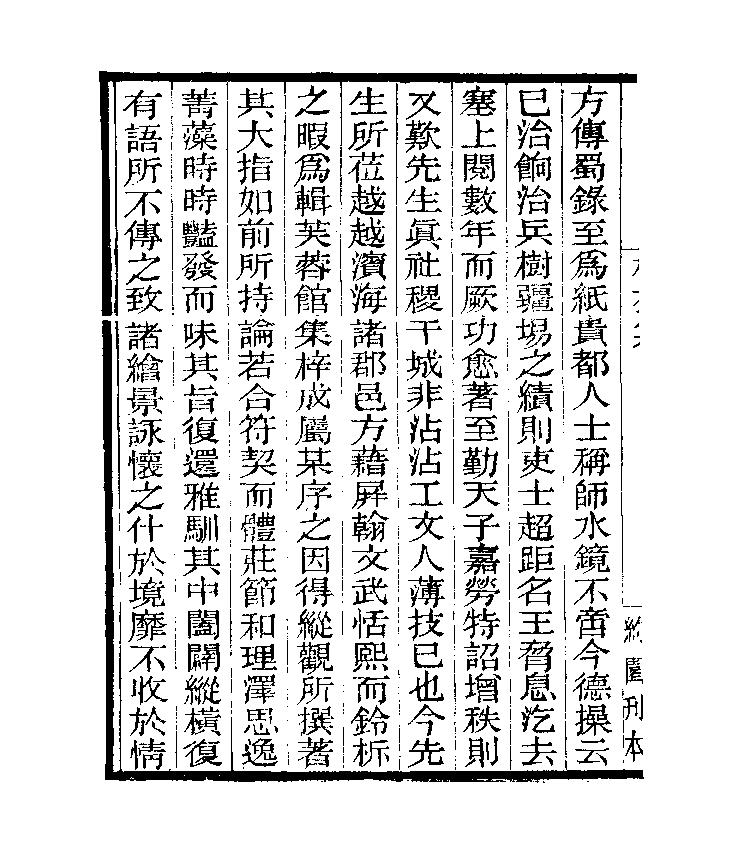 約園刊本
方傳蜀錄至爲紙貴都人士稱師水鏡不啻今德操云
已治餉治兵樹疆場之績則吏士超距名王脅息汔去
塞上閱數年而厥功愈著至勤天子嘉勞特詔增秩則
又歎先生眞社稷干城非沾沾工文人薄技已也今先
生所莅越越濱海諸郡邑方藉屏翰文武恬熙而鈴柝
之暇爲輯芙蓉館集梓成屬某序之因得縱觀所撰著
其大指如前所持論若合符契而體莊節和理澤思逸
菁藻時時豔發而味其旨復還雅馴其中闔闢縱橫復
有語所不傳之致諸繪景詠懷之什於境靡不收於情